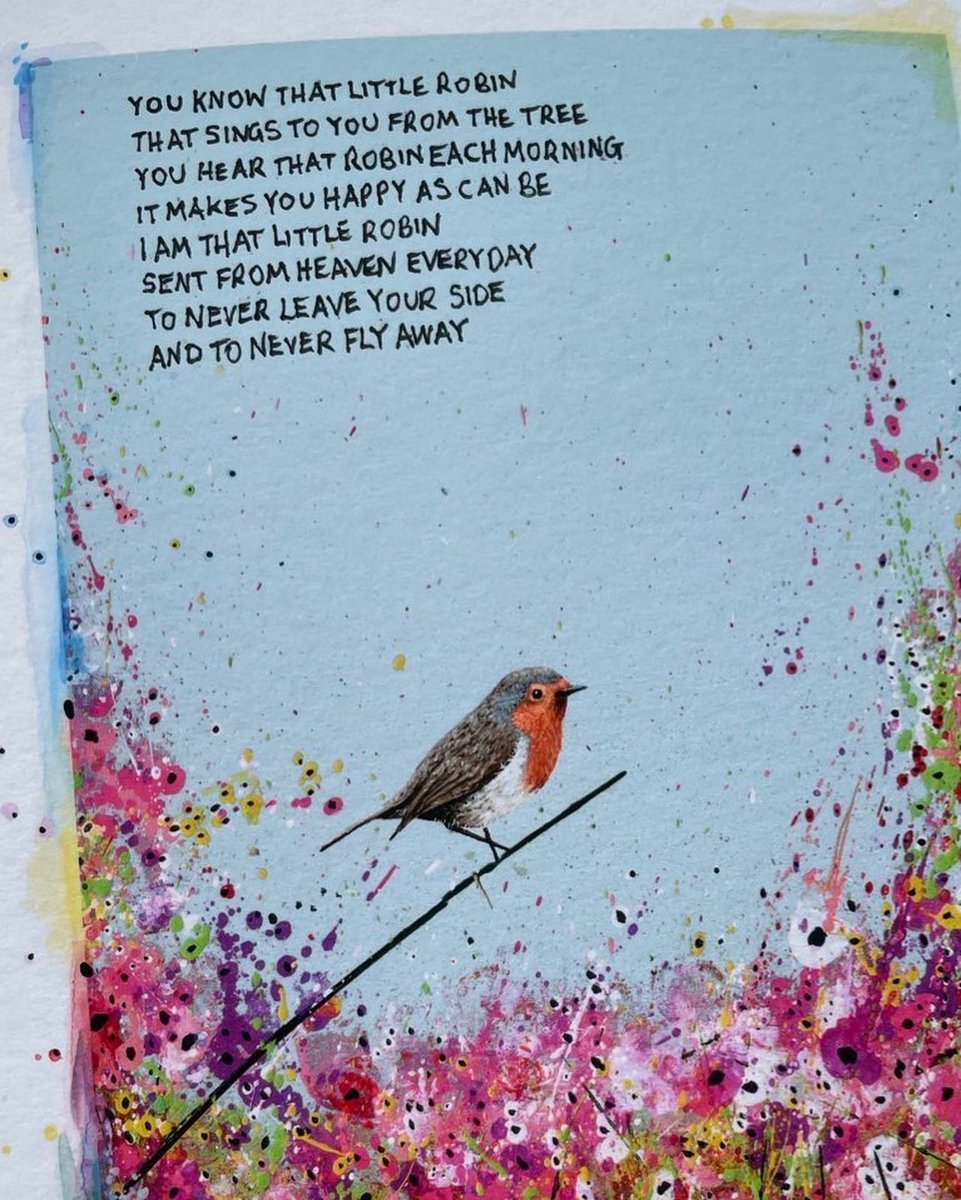 YOU KNOW THAT LITTLE ROBIN
THAT SINGS TO YOU FROM THE TREE
YOU HEAR THAT ROBIN EACH MORNING
IT MAKES YOU HAPPY AS CAN BE
I AM THAT LITTLE ROBIN
SENT FROM HEAVEN EVERYDAY
TO NEVER LEAVE YOUR SIDE
AND TO NEVER FLY AWAY